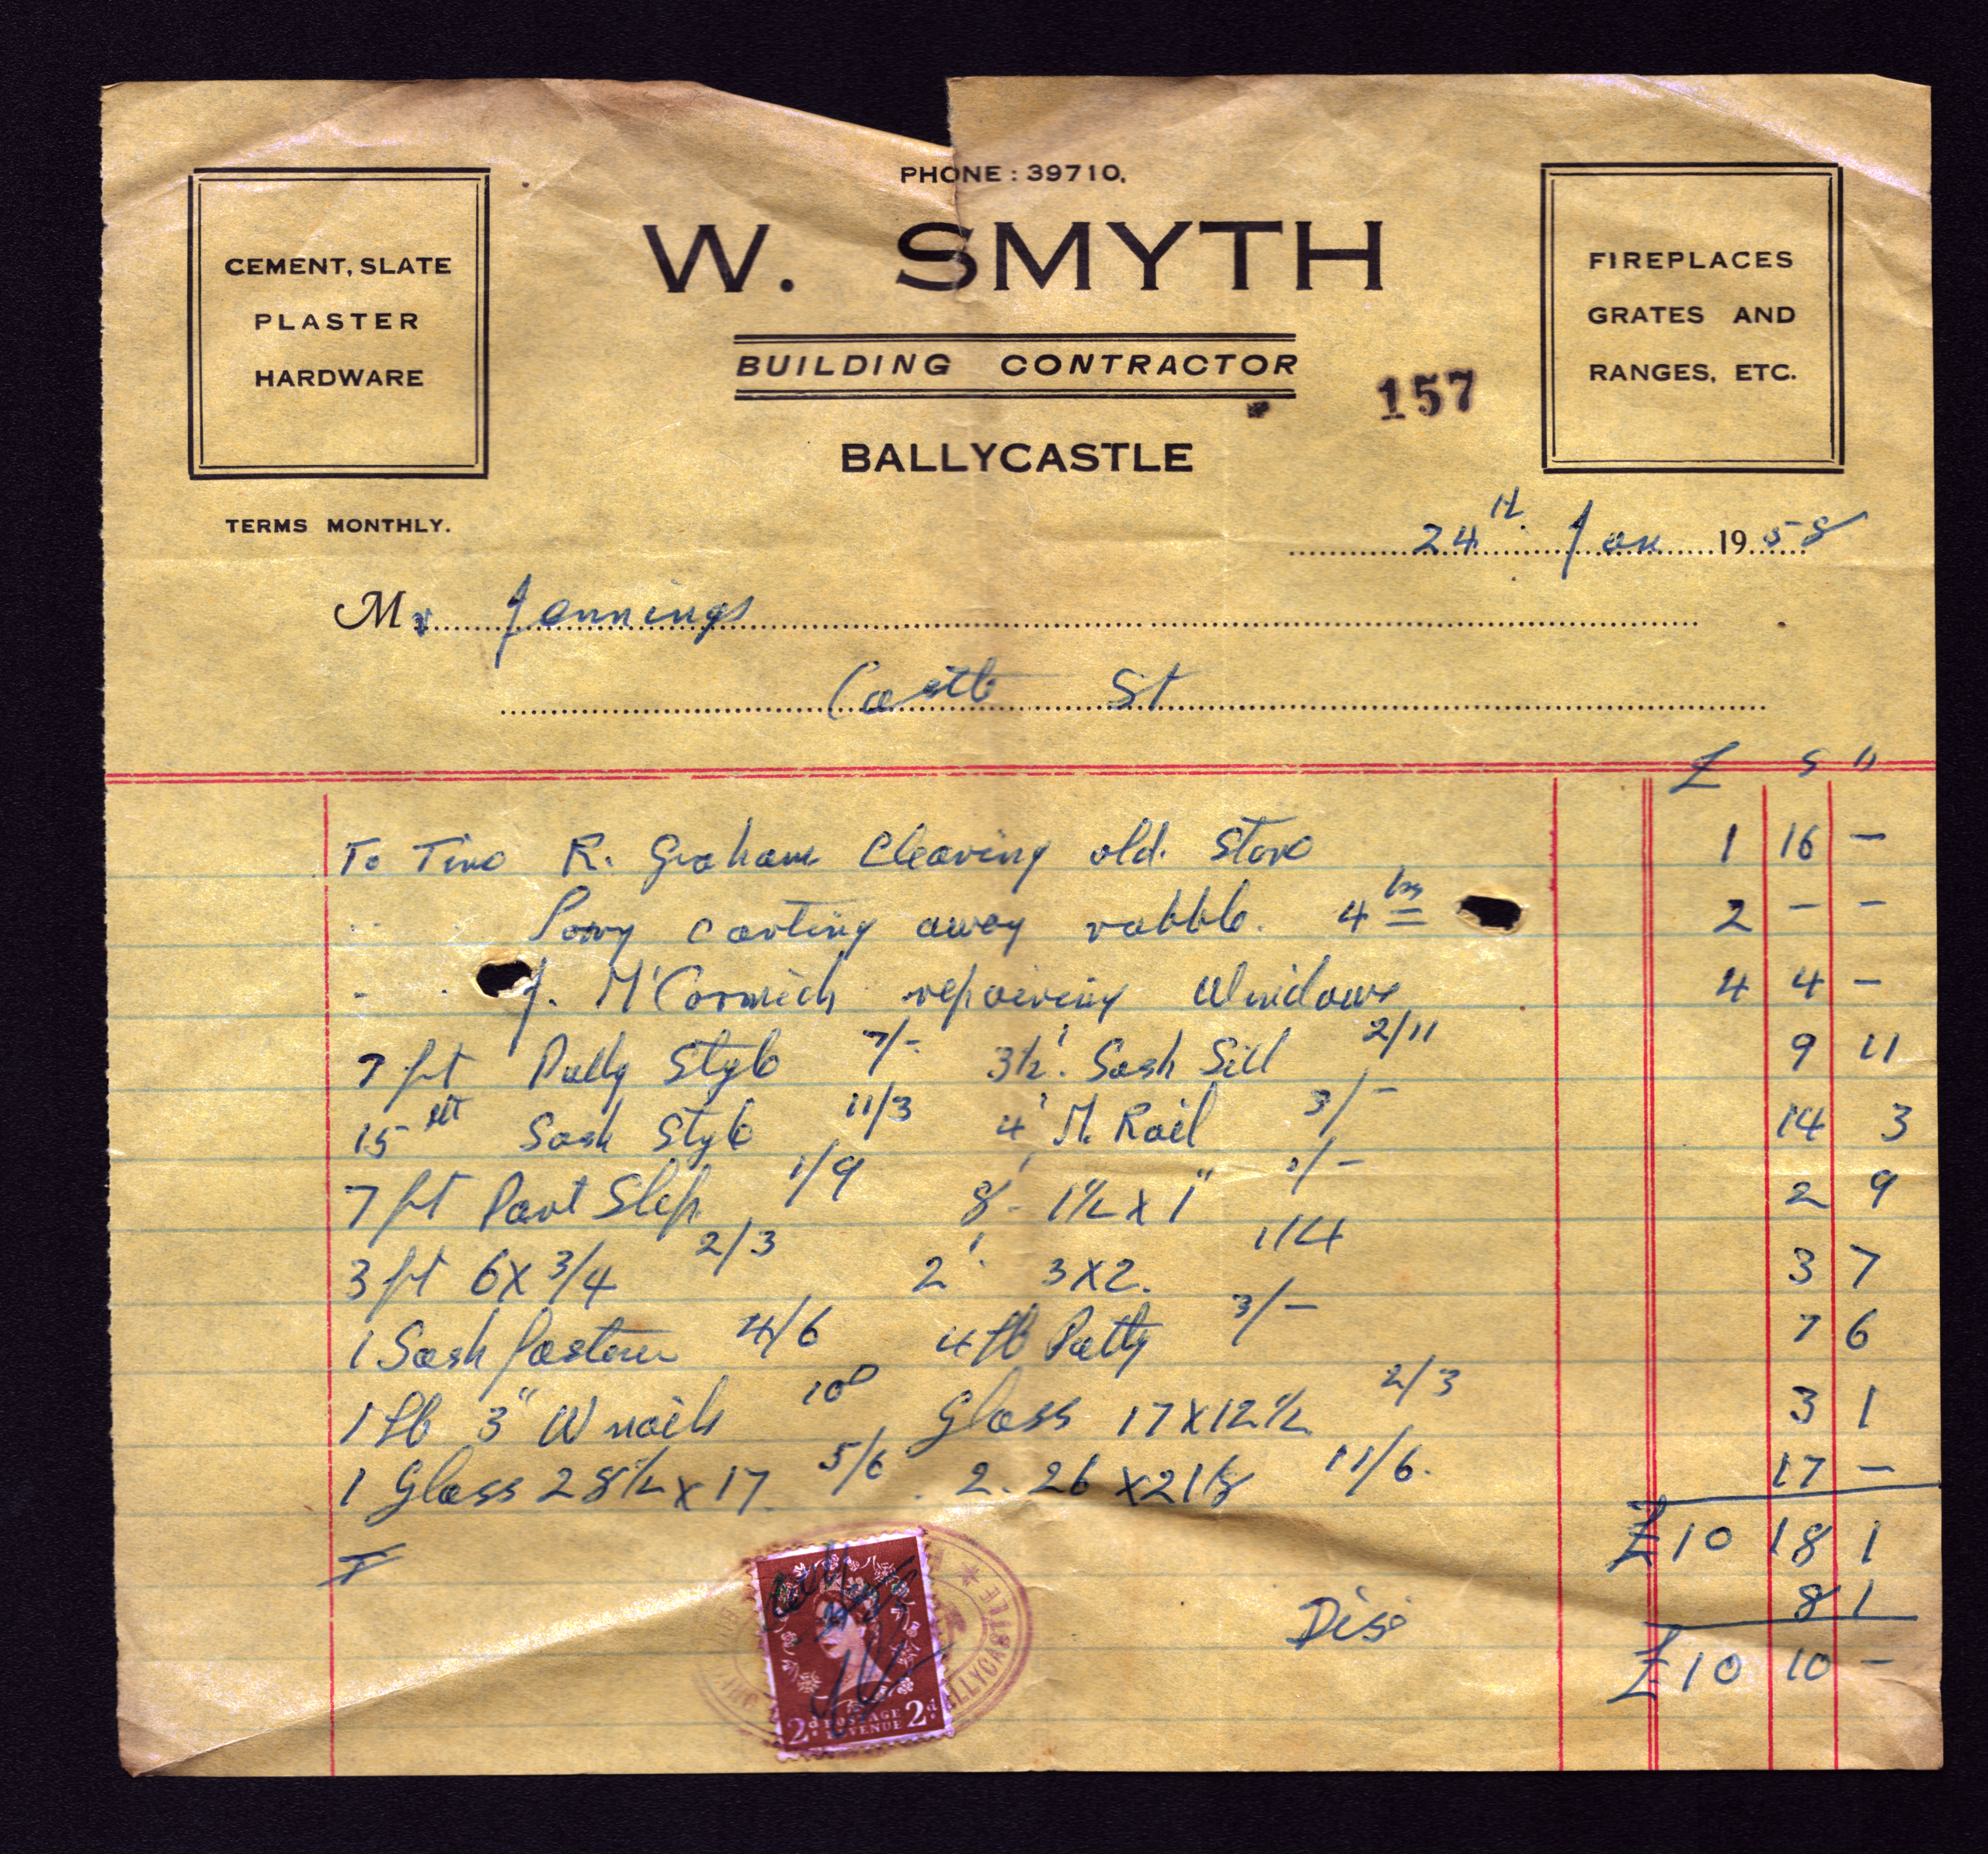 PHONE : 39710.
W. SMYTH
BUILDING CONTRACTOR
BALLYCASTLE
157
CEMENT, SLATE
PLASTER
HARDWARE
FIREPLACES
GRATES AND
RANGES, ETC.
TERMS MONTHLY.
24th Jan 1958
Mr Jennings
Castle St
£ s d
To Time R. Graham Clearing old Store 1 16 -
" " Lorry carting away rubble. 4 hrs 2 - -
" " J. McCormick repairing Windows 4 4 -
7 ft Pully Style 7/- 3½' Sash Sill 2/11 9 11
15 ft Sash Style 11/3 4' M. Rail 3/- 14 3
7 ft Part Slip 1/9 8' 1½ x 1" 1/- 2 9
3 ft 6 x 3/4 2/3 2' 3 x 2. 1/4 3 7
1 Sash fastener 4/6 4 lb Putty 3/- 7 6
1 lb 3" W nails 10d Glass 17 x 12½ 2/3 3 1
1 Glass 28½ x 17 5/6 2. 26 x 21⅛ 11/6. 17 -
£10 18 1
Dis 8 1
£10 10 -
2d POSTAGE REVENUE 2d
BALLYCASTLE